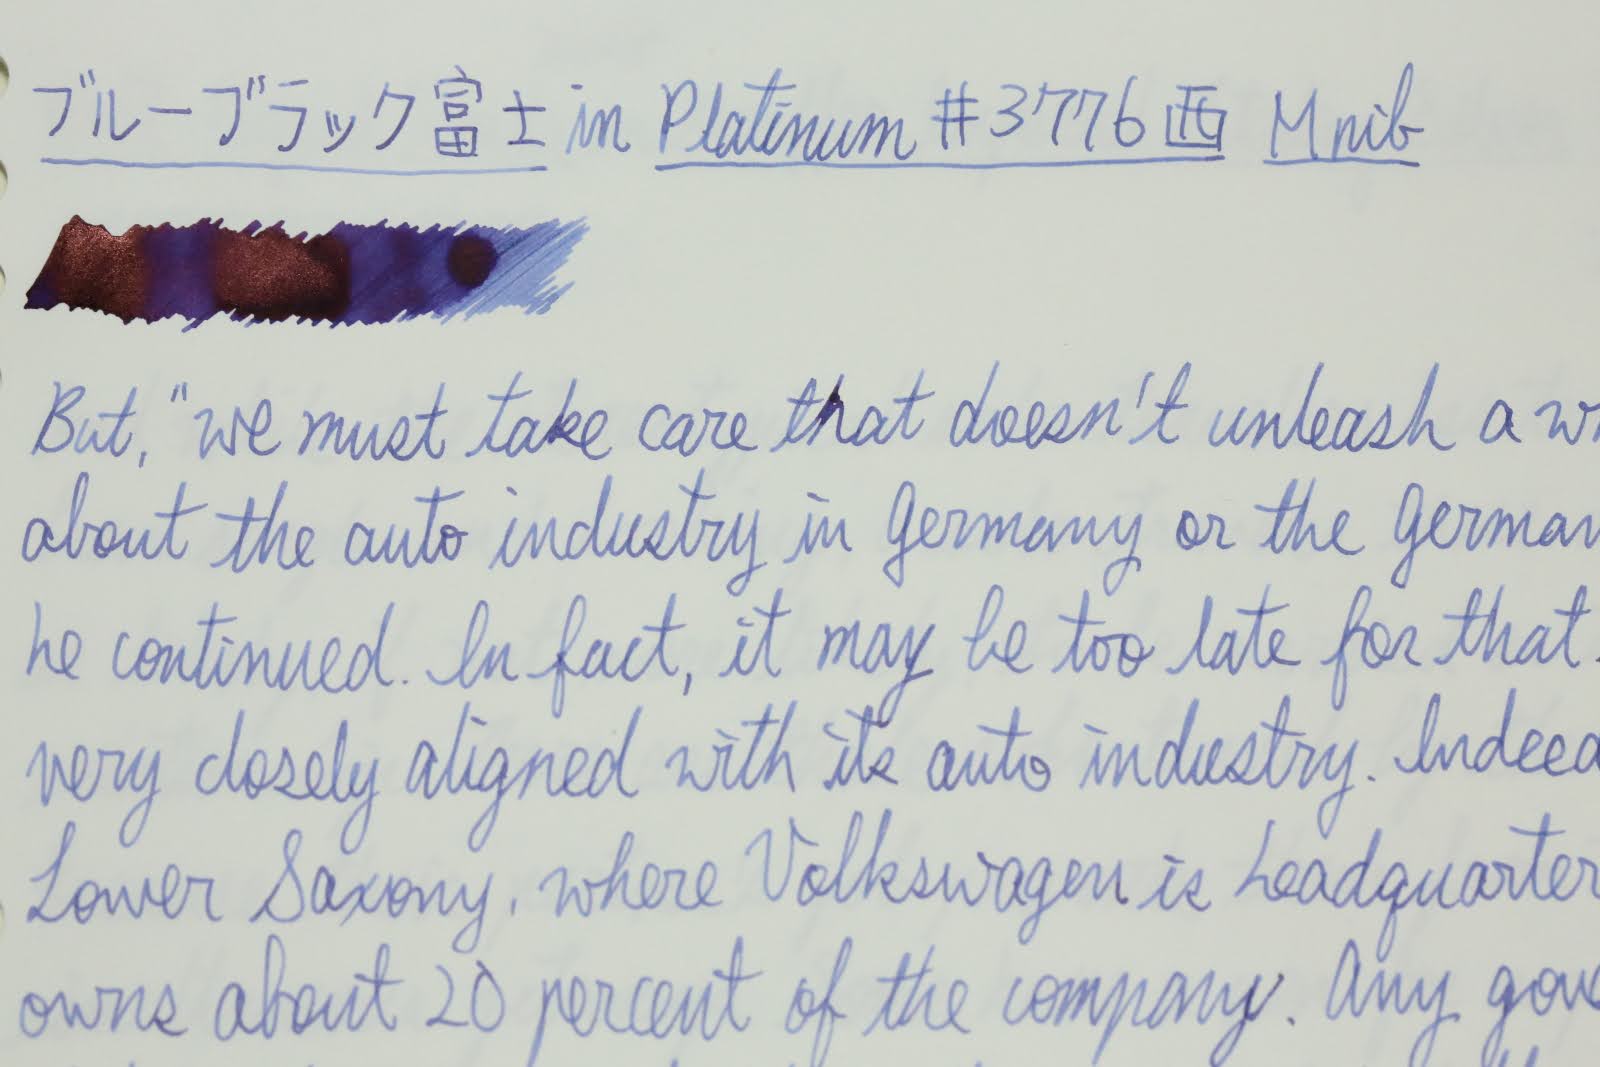 ブルーブラック富士 in Platinum #3776 西 M nib
But, "we must take care that doesn't unleash a
about the auto industry in Germany or the German
he continued. In fact, it may be too late for that.
very closely aligned with its auto industry. Indeed
Lower Saxony, where Volkswagen is headquarter
owns about 20 percent of the company. Any gov